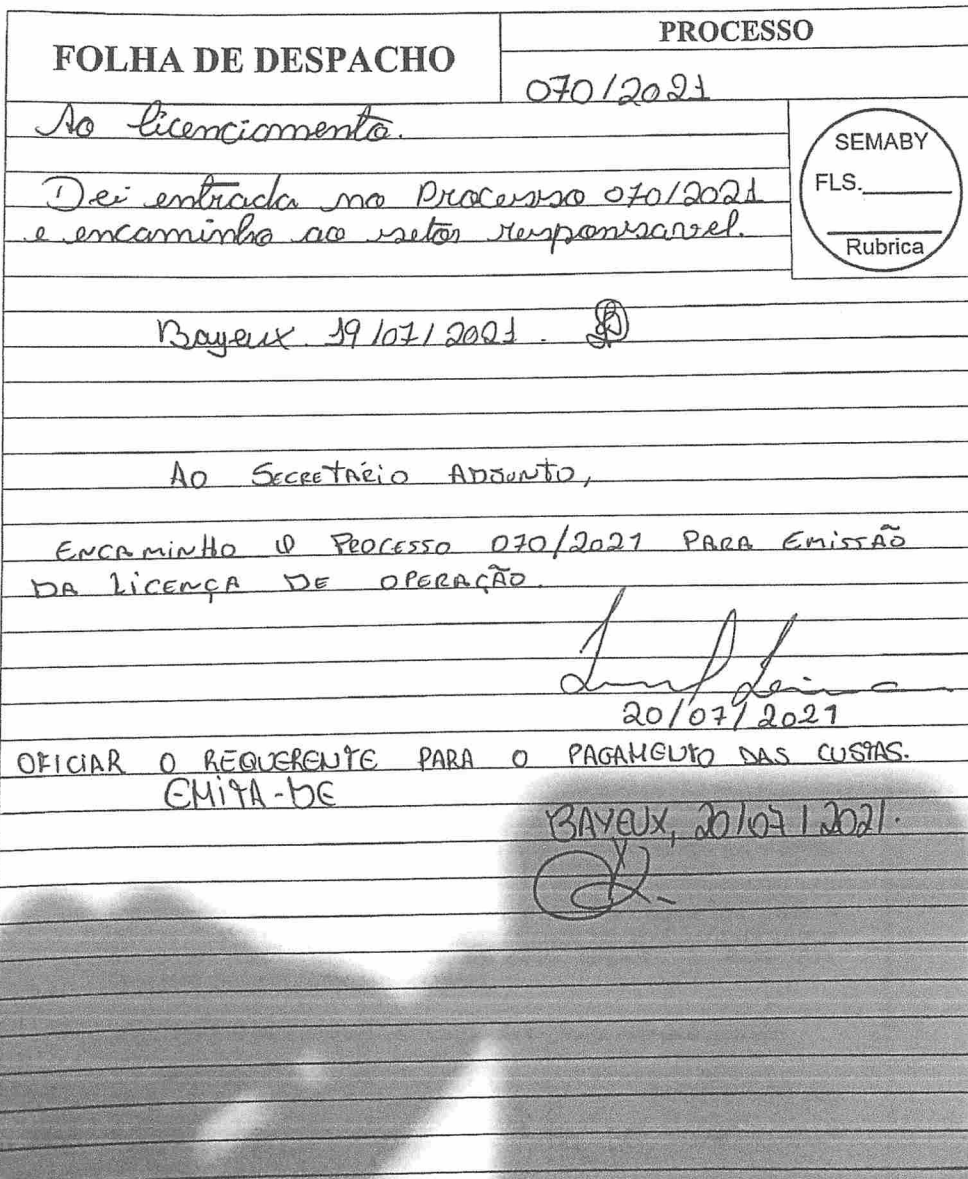 FOLHA DE DESPACHO
PROCESSO
070/2021
Ao licenciamento.
SEMABY
FLS.
Rubrica
Dei entrada no Processo 070/2021
e encaminho ao setor responsavel.
Bayeux 19/07/2021.
Ao Secretário Adjunto,
Encaminho o Processo 070/2021 para Emissão
da Licença de operação.
20/07/2021
OFICIAR O REQUERENTE PARA O PAGAMENTO DAS CUSTAS.
EMITA-DE
BAYEUX, 20/07/2021.